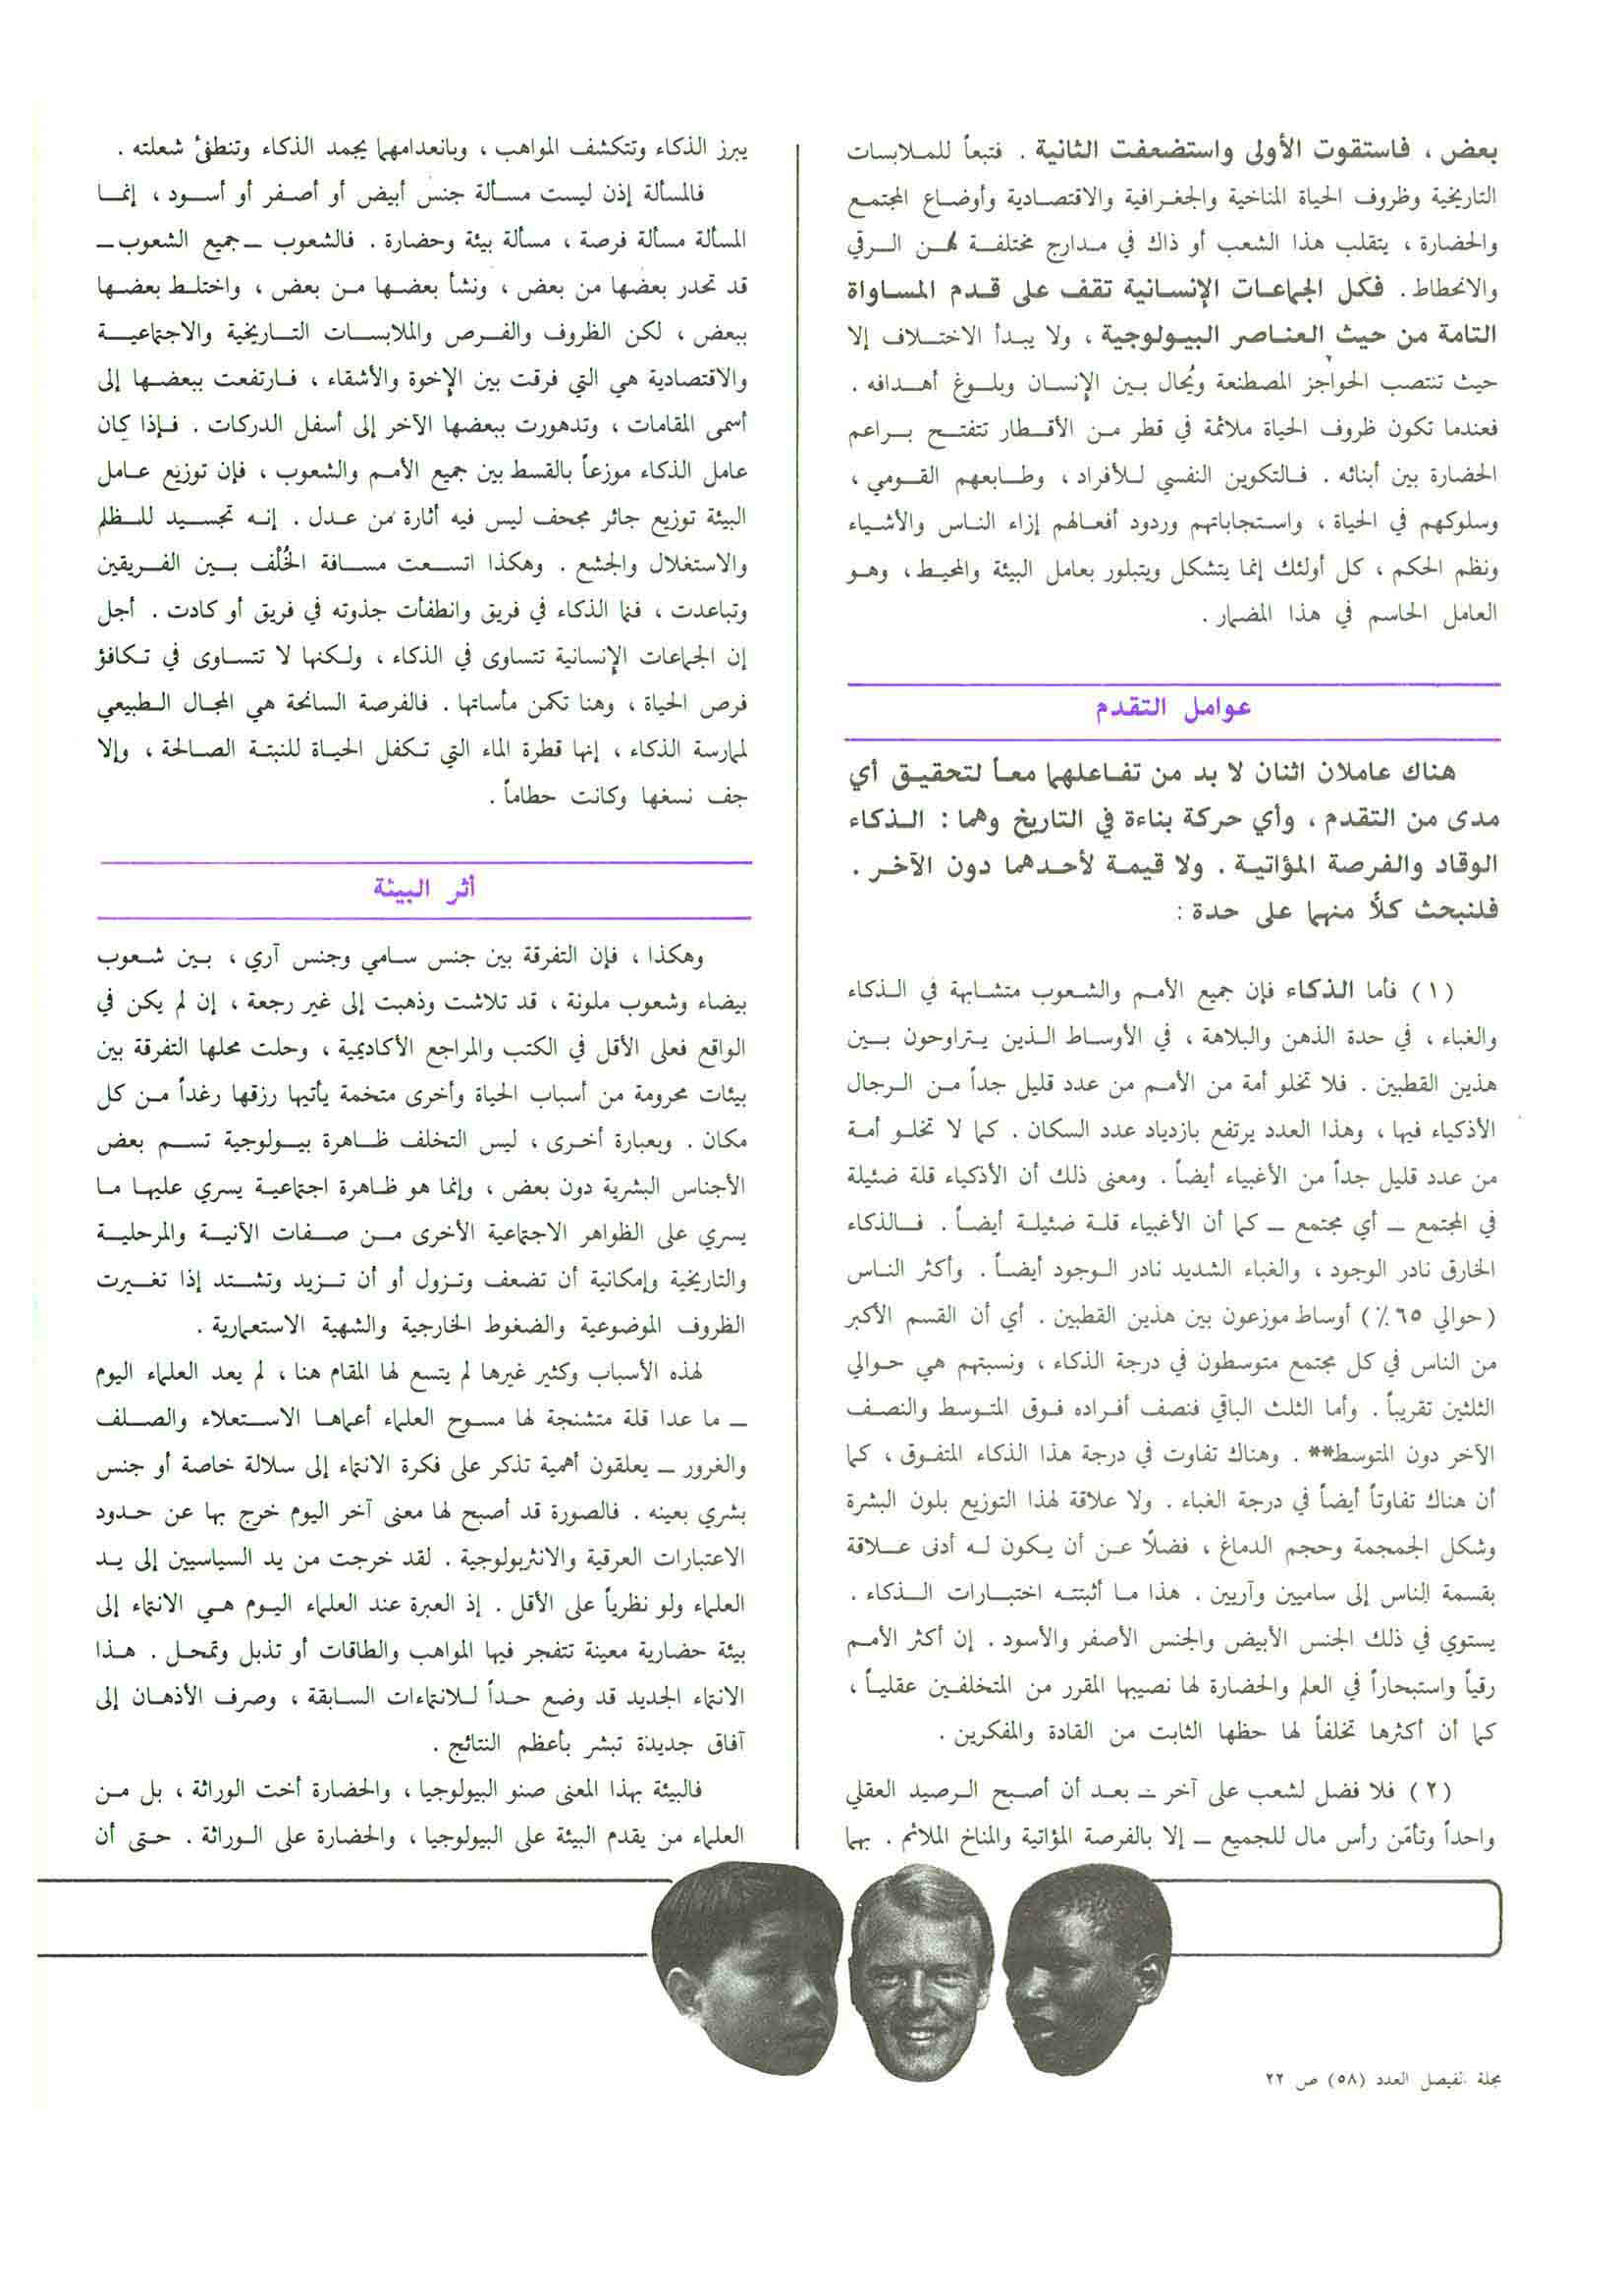 بعض ، فاستقوت الأولى واستضعفت الثانية . فتبعاً للملابسات
التاريخية وظروف الحياة المناخية والجغرافية والاقتصادية وأوضاع المجتمع
والحضارة ، يتقلب هذا الشعب أو ذاك في مدارج مختلفة من الرقي
والانحطاط . فكل الجماعات الإنسانية تقف على قدم المساواة
التامة من حيث العناصر البيولوجية ، ولا يبدأ الاختلاف إلا
حيث تنتصب الحواجز المصطنعة ويُحال بين الإنسان وبلوغ أهدافه .
فعندما تكون ظروف الحياة ملائمة في قطر من الأقطار تتفتح براعم
الحضارة بين أبنائه . فالتكوين النفسي للأفراد ، وطابعهم القومي ،
وسلوكهم في الحياة ، واستجاباتهم وردود أفعالهم إزاء الناس والأشياء
ونظم الحكم ، كل أولئك إنما يتشكل ويتبلور بعامل البيئة والمحيط ، وهو
العامل الحاسم في هذا المضمار .
عوامل التقدم
هناك عاملان اثنان لا بد من تفاعلهما معاً لتحقيق أي
مدى من التقدم ، وأي حركة بناءة في التاريخ وهما : الذكاء
الوقاد والفرصة المؤاتية . ولا قيمة لأحدهما دون الآخر .
فلنبحث كلاً منهما على حدة :
(١) فأما الذكاء فإن جميع الأمم والشعوب متشابهة في الذكاء
والغباء ، في حدة الذهن والبلاهة ، في الأوساط الذين يتراوحون بين
هذين القطبين . فلا تخلو أمة من الأمم من عدد قليل جداً من الرجال
الأذكياء فيها ، وهذا العدد يرتفع بازدياد عدد السكان . كما لا تخلو أمة
من عدد قليل جداً من الأغبياء أيضاً . ومعنى ذلك أن الأذكياء قلة ضئيلة
في المجتمع ــ أي مجتمع ــ كما أن الأغبياء قلة ضئيلة أيضاً . فالذكاء
الخارق نادر الوجود ، والغباء الشديد نادر الوجود أيضاً . وأكثر الناس
(حوالي ٦٥٪) أوساط موزعون بين هذين القطبين . أي أن القسم الأكبر
من الناس في كل مجتمع متوسطون في درجة الذكاء ، ونسبتهم هي حوالي
الثلثين تقريباً . وأما الثلث الباقي فنصف أفراده فوق المتوسط والنصف
الآخر دون المتوسط** . وهناك تفاوت في درجة هذا الذكاء المتفوق ، كما
أن هناك تفاوتاً أيضاً في درجة الغباء . ولا علاقة لهذا التوزيع بلون البشرة
وشكل الجمجمة وحجم الدماغ ، فضلاً عن أن يكون له أدنى علاقة
بقسمة الناس إلى ساميين وآريين . هذا ما أثبتته اختبارات الذكاء .
يستوي في ذلك الجنس الأبيض والجنس الأصفر والأسود . إن أكثر الأمم
رقياً واستبحاراً في العلم والحضارة لها نصيبها المقرر من المتخلفين عقلياً ،
كما أن أكثرها تخلفاً لها حظها الثابت من القادة والمفكرين .
(٢) فلا فضل لشعب على آخر ــ بعد أن أصبح الرصيد العقلي
واحداً وتأمّن رأس مال للجميع ــ إلا بالفرصة المؤاتية والمناخ الملائم . بهما
يبرز الذكاء وتتكشف المواهب ، وبانعدامهما يجمد الذكاء وتنطفئ شعلته .
فالمسألة إذن ليست مسألة جنس أبيض أو أصفر أو أسود ، إنما
المسألة مسألة فرصة ، مسألة بيئة وحضارة . فالشعوب ــ جميع الشعوب ــ
قد تحدر بعضها من بعض ، ونشأ بعضها من بعض ، واختلط بعضها
ببعض ، لكن الظروف والفرص والملابسات التاريخية والاجتماعية
والاقتصادية هي التي فرقت بين الإخوة والأشقاء ، فارتفعت ببعضها إلى
أسمى المقامات ، وتدهورت ببعضها الآخر إلى أسفل الدركات . فإذا كان
عامل الذكاء موزعاً بالقسط بين جميع الأمم والشعوب ، فإن توزيع عامل
البيئة توزيع جائر مجحف ليس فيه أثارة من عدل . إنه تجسيد للظلم
والاستغلال والجشع . وهكذا اتسعت مسافة الخُلْف بين الفريقين
وتباعدت ، فنما الذكاء في فريق وانطفأت جذوته في فريق أو كادت . أجل
إن الجماعات الإنسانية تتساوى في الذكاء ، ولكنها لا تتساوى في تكافؤ
فرص الحياة ، وهنا تكمن مأساتها . فالفرصة السانحة هي المجال الطبيعي
لممارسة الذكاء ، إنها قطرة الماء التي تكفل الحياة للنبتة الصالحة ، وإلا
جف نسغها وكانت حطاماً .
أثر البيئة
وهكذا ، فإن التفرقة بين جنس سامي وجنس آري ، بين شعوب
بيضاء وشعوب ملونة ، قد تلاشت وذهبت إلى غير رجعة ، إن لم يكن في
الواقع فعلى الأقل في الكتب والمراجع الأكاديمية ، وحلت محلها التفرقة بين
بيئات محرومة من أسباب الحياة وأخرى متخمة يأتيها رزقها رغداً من كل
مكان . وبعبارة أخرى ، ليس التخلف ظاهرة بيولوجية تسم بعض
الأجناس البشرية دون بعض ، وإنما هو ظاهرة اجتماعية يسري عليها ما
يسري على الظواهر الاجتماعية الأخرى من صفات الآنية والمرحلية
والتاريخية وإمكانية أن تضعف وتزول أو أن تزيد وتشتد إذا تغيرت
الظروف الموضوعية والضغوط الخارجية والشهية الاستعمارية .
لهذه الأسباب وكثير غيرها لم يتسع لها المقام هنا ، لم يعد العلماء اليوم
ــ ما عدا قلة متشنجة لها مسوح العلماء أعماها الاستعلاء والصلف
والغرور ــ يعلقون أهمية تذكر على فكرة الانتماء إلى سلالة خاصة أو جنس
بشري بعينه . فالصورة قد أصبح لها معنى آخر اليوم خرج بها عن حدود
الاعتبارات العرقية والانثربولوجية . لقد خرجت من يد السياسيين إلى يد
العلماء ولو نظرياً على الأقل . إذ العبرة عند العلماء اليوم هي الانتماء إلى
بيئة حضارية معينة تتفجر فيها المواهب والطاقات أو تذبل وتمحل . هذا
الانتماء الجديد قد وضع حداً للانتماءات السابقة ، وصرف الأذهان إلى
آفاق جديدة تبشر بأعظم النتائج .
فالبيئة بهذا المعنى صنو البيولوجيا ، والحضارة أخت الوراثة ، بل من
العلماء من يقدم البيئة على البيولوجيا ، والحضارة على الوراثة . حتى أن
مجلة الفيصل العدد (٥٨) ص ٢٢